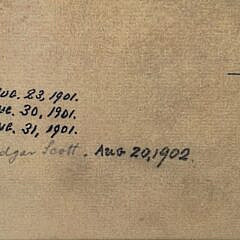 UG. 23, 1901.
UG. 30, 1901.
UG. 31, 1901.
dgar Scott. AUG 20, 1902.